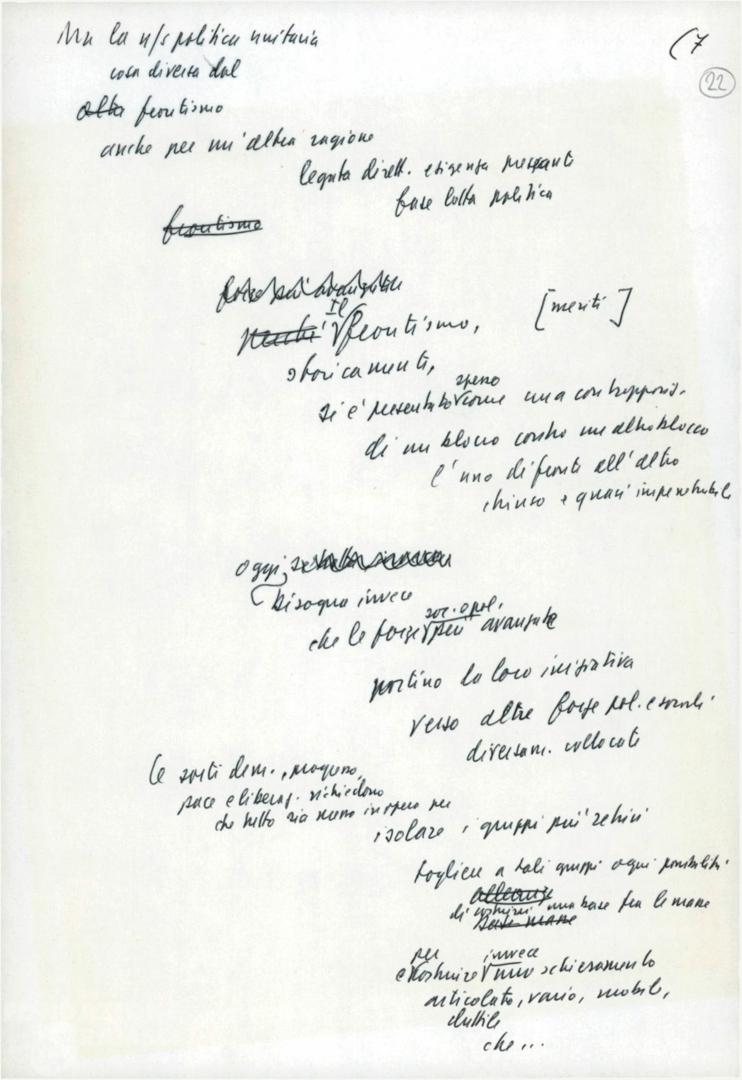 (7
22
Ma la n/s politica unitaria
cosa diversa dal
altro frontismo
anche per un'altra ragione
legata dirett. esigenze pressanti
fase lotta politica
frontismo
forze più avanzate
perché Il frontismo, [meriti]
storicamente,
si è presentato spesso come una contrapposiz.
di un blocco contro un altro blocco
l'uno di fronte all'altro
chiuso e quasi impenetrabile
oggi,
Bisogna invece
che le forze soc. e pol. più avanzate
portino la loro iniziativa
verso altre forze pol. e sociali
diversam. collocate
Le sorti dem., progresso,
pace e liberaz. richiedono
che tutto sia messo in opera per
isolare i gruppi più retrivi
togliere a tali gruppi ogni possibilità
alleanze
di costruirsi una base fra le masse
base masse
e per costruire invece uno schieramento
articolato, vario, mobile,
duttile
che ...